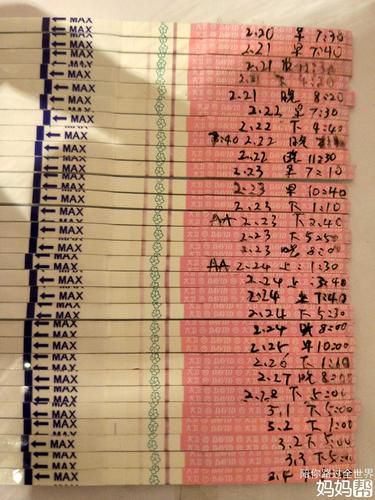 MAX 2.20 早 7:30
MAX 2.21 早 7:40
MAX 2.21
MAX 2.21 下
MAX 2.21 晚 8:20
MAX 2.22 早 7:30
MAX 2.22 下 4:40
MAX 2.22 晚
MAX 2.22 晚 11:30
MAX 2.23 早 7:10
MAX 2.23 早 10:40
MAX 2.23 下 1:10
MAX AA 2.23 下 2:40
MAX 2.23 下 5:50
MAX 2.23 晚 8:00
MAX AA 2.24 上 1:30
MAX 2.24 上 3:40
MAX 2.24 早 7:40
MAX 2.24 下 5:30
MAX 2.24 晚 8:00
MAX 2.25 早 10:00
MAX 2.26 下
MAX 2.27 晚 8:00
MAX 2.28 下 5:00
MAX 3.1 下 5:00
MAX 3.2 下 1:00
MAX 3.2 下 5:00
MAX 3.3 下 5:00
MAX
陪你路过全世界
妈妈帮